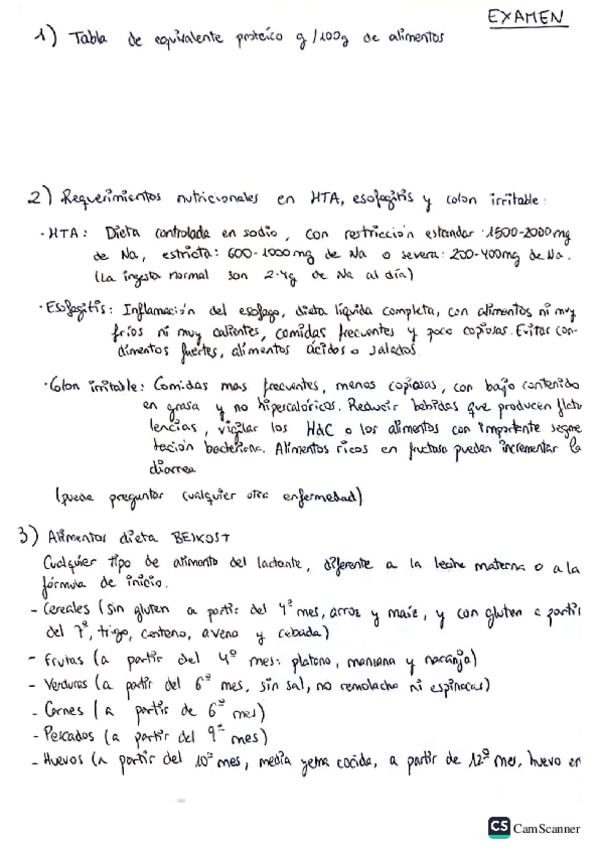 EXAMEN
1) Tabla de equivalente proteico g/100g de alimentos
2) Requerimientos nutricionales en HTA, esofagitis y colon irritable:
· HTA: Dieta controlada en sodio, con restricción estandar: 1500-2000mg
de Na, estricta: 600-1000mg de Na o severa: 200-400mg de Na.
(La ingesta normal son 2-4g de Na al día)
· Esofagitis: Inflamación del esofago, dieta líquida completa, con alimentos ni muy
fríos ni muy calientes, comidas frecuentes y poco copiosas. Evitar con-
dimentos fuertes, alimentos ácidos o salados.
· Colon irritable: Comidas mas frecuentes, menos copiosas, con bajo contenido
en grasa y no hipercalóricos. Reducir bebidas que producen flatu
lencias, vigilar los HdC o los alimentos con importante
bacteriana. Alimentos ricos en fructosa pueden incrementar la
diarrea
(puede preguntar cualquier otra enfermedad)
3) Alimentos dieta BEIKOST
Cualquier tipo de alimento del lactante, diferente a la leche materna o a la
fórmula de inicio.
- Cereales (sin gluten a partir del 4º mes, arroz y maíz, y con gluten a partir
del 7º, trigo, centeno, avena y cebada)
- Frutas (a partir del 4º mes: platano, manzana y naranja)
- Verduras (a partir del 6º mes, sin sal, no remolacha ni espinacas)
- Carnes (a partir de 6º mes)
- Pescados (a partir del 9º mes)
- Huevos (a partir del 10º mes, media yema cocida, a partir de 12º mes, huevo en
CS CamScanner